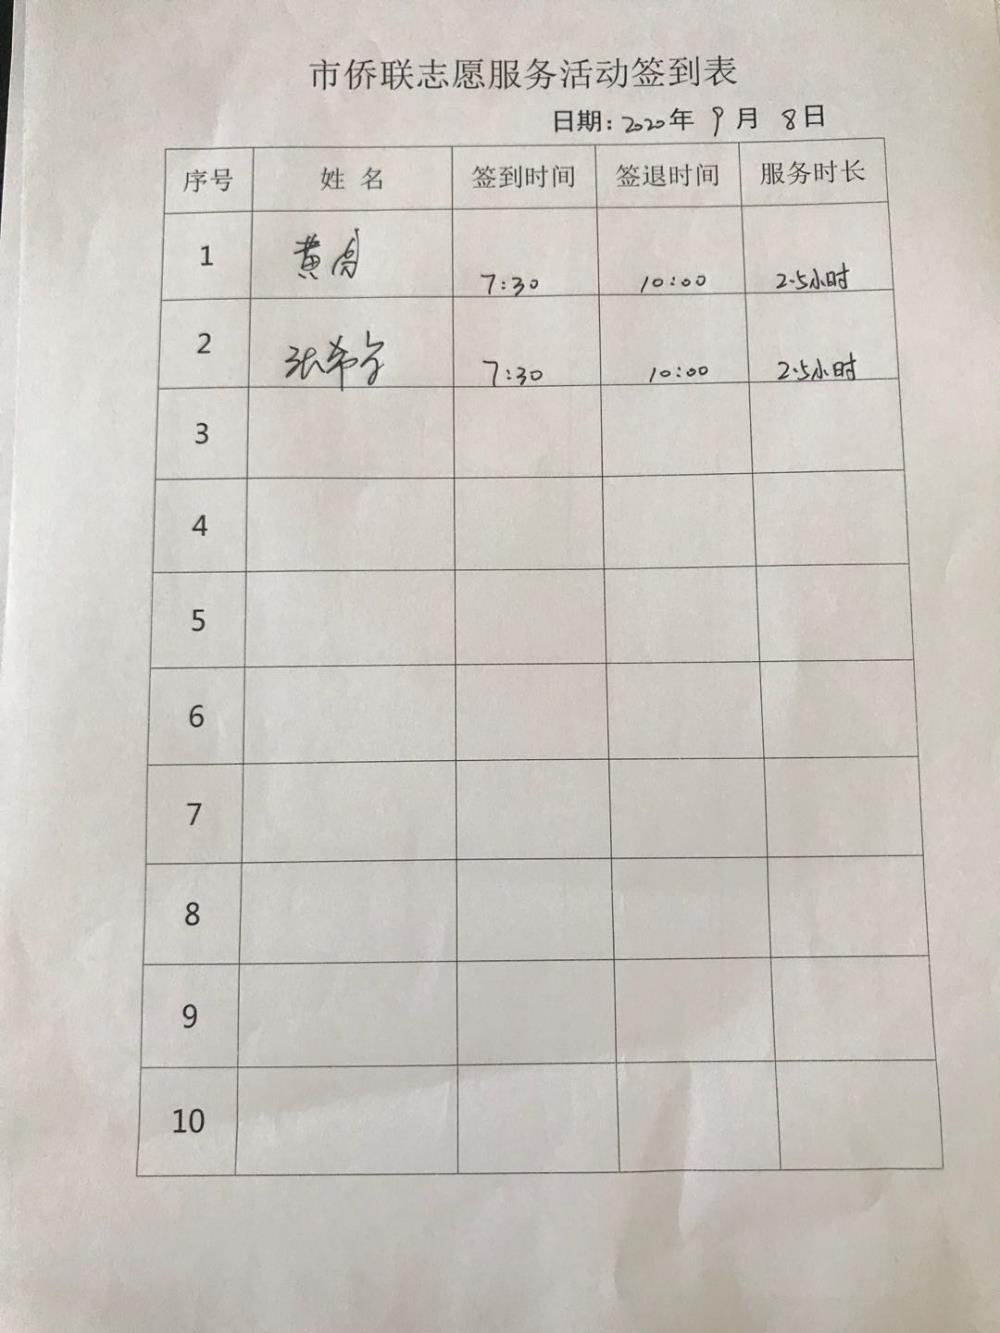 市侨联志愿服务活动签到表
日期：2020年 9月 8日
序号 姓 名 签到时间 签退时间 服务时长
1 黄 7:30 10:00 2.5小时
2 张希 7:30 10:00 2.5小时
3
4
5
6
7
8
9
10